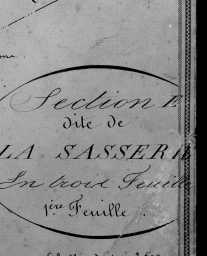 Section E
dite de
LA SASSER
En trois Feuille
1ère Feuille.